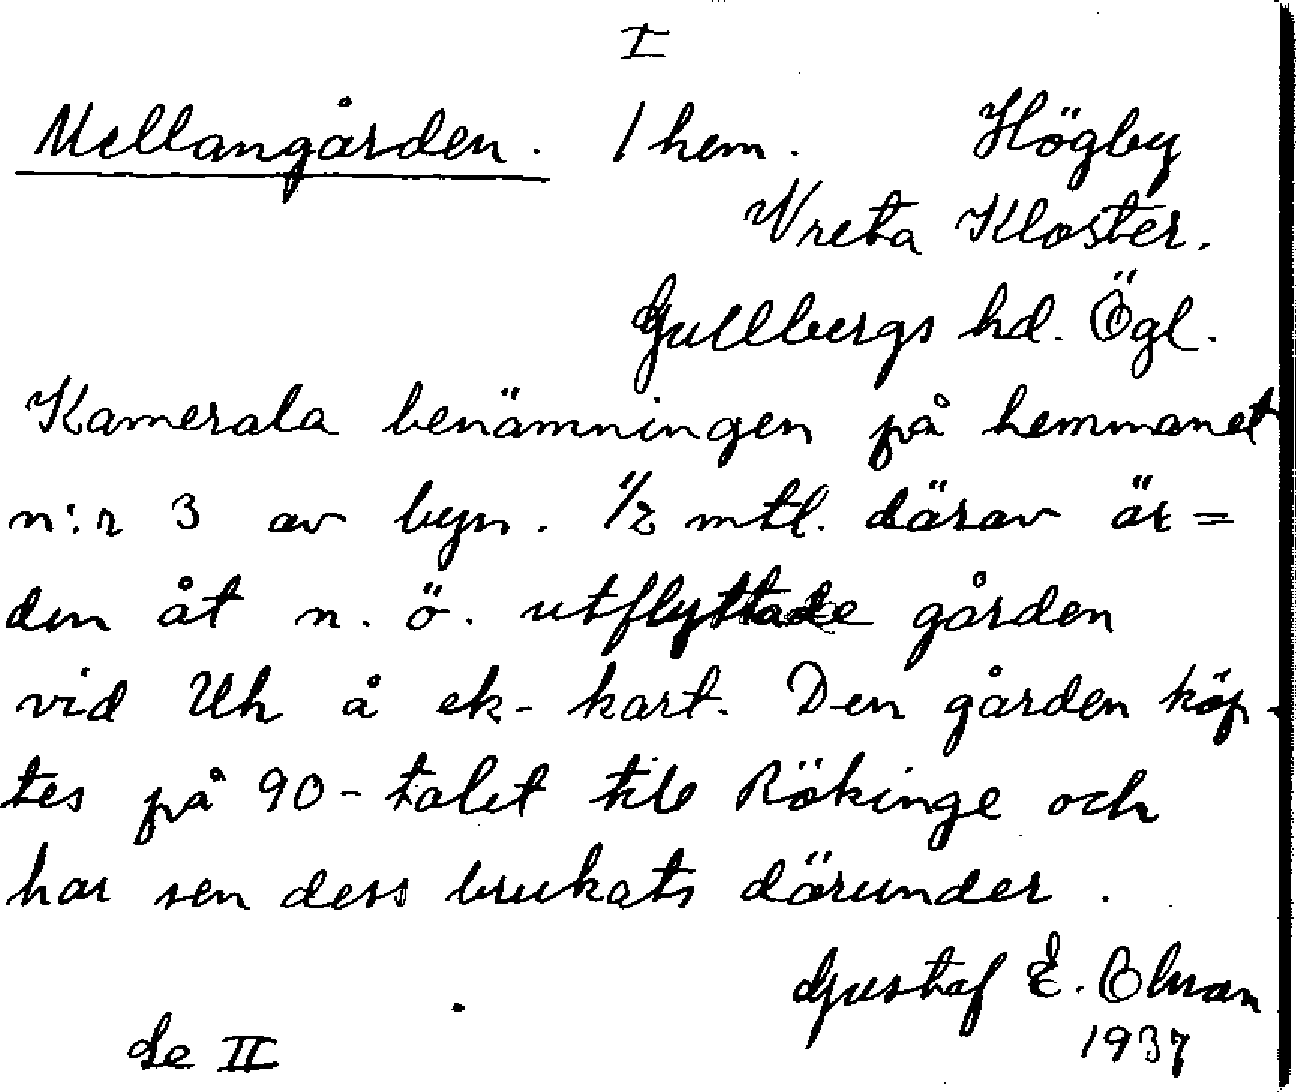 I
Mellangården. 1 hem. Högby
Vreta Kloster.
Gullbergs hd. Ögl.
Kamerala benämningen på hemmanet
n:r 3 av byn. 1/2 mtl. därav är =
den åt n. ö. utflyttade gården
vid Uh å ek-kart. Den gården köp-
tes på 90-talet till Rökinge och
har sen dess brukats därunder.
Gustaf E.
1937
Se II